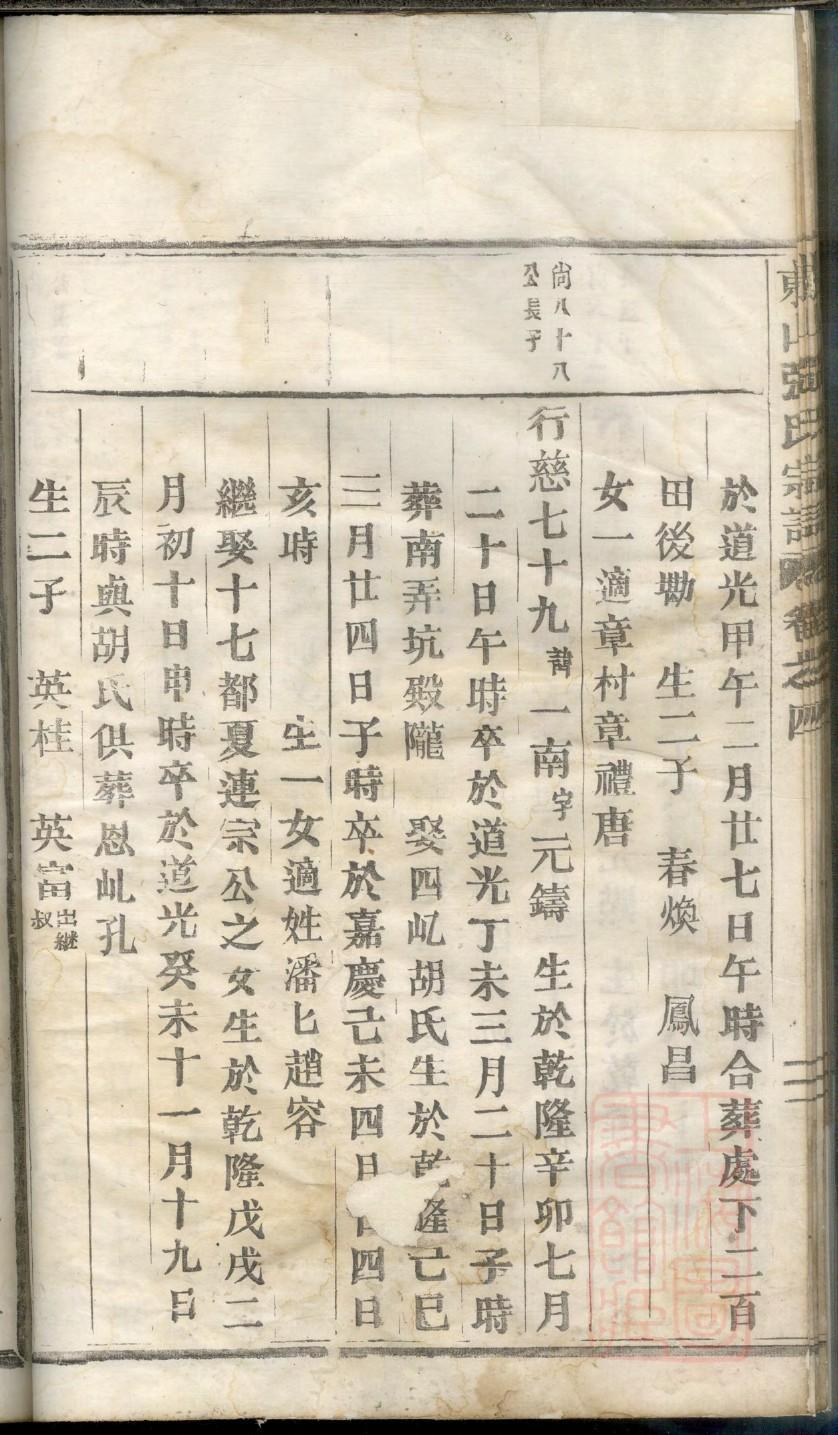 張氏宗譜
卷之四
於道光甲午二月廿七日午時合葬處下二百
田後墈 生二子 春煥 鳳昌
女一適章村章禮唐
尙八十八
公長子
行慈七十九諱一南字元鑄 生於乾隆辛卯七月
二十日午時卒於道光丁未三月二十日子時
葬南弄坑殿隴 娶四乢胡氏生於乾隆己巳
三月廿四日子時卒於嘉慶己未四月四日
亥時 生一女適姓潘匕趙容
繼娶十七都夏連宗公之女生於乾隆戊戌二
月初十日申時卒於道光癸未十一月十九日
辰時與胡氏供葬恩乢孔
生二子 英桂 英富出継叔